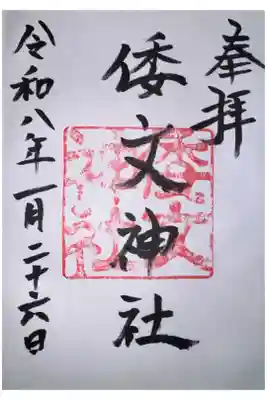 奉拝
倭文神社
令和八年一月二十六日